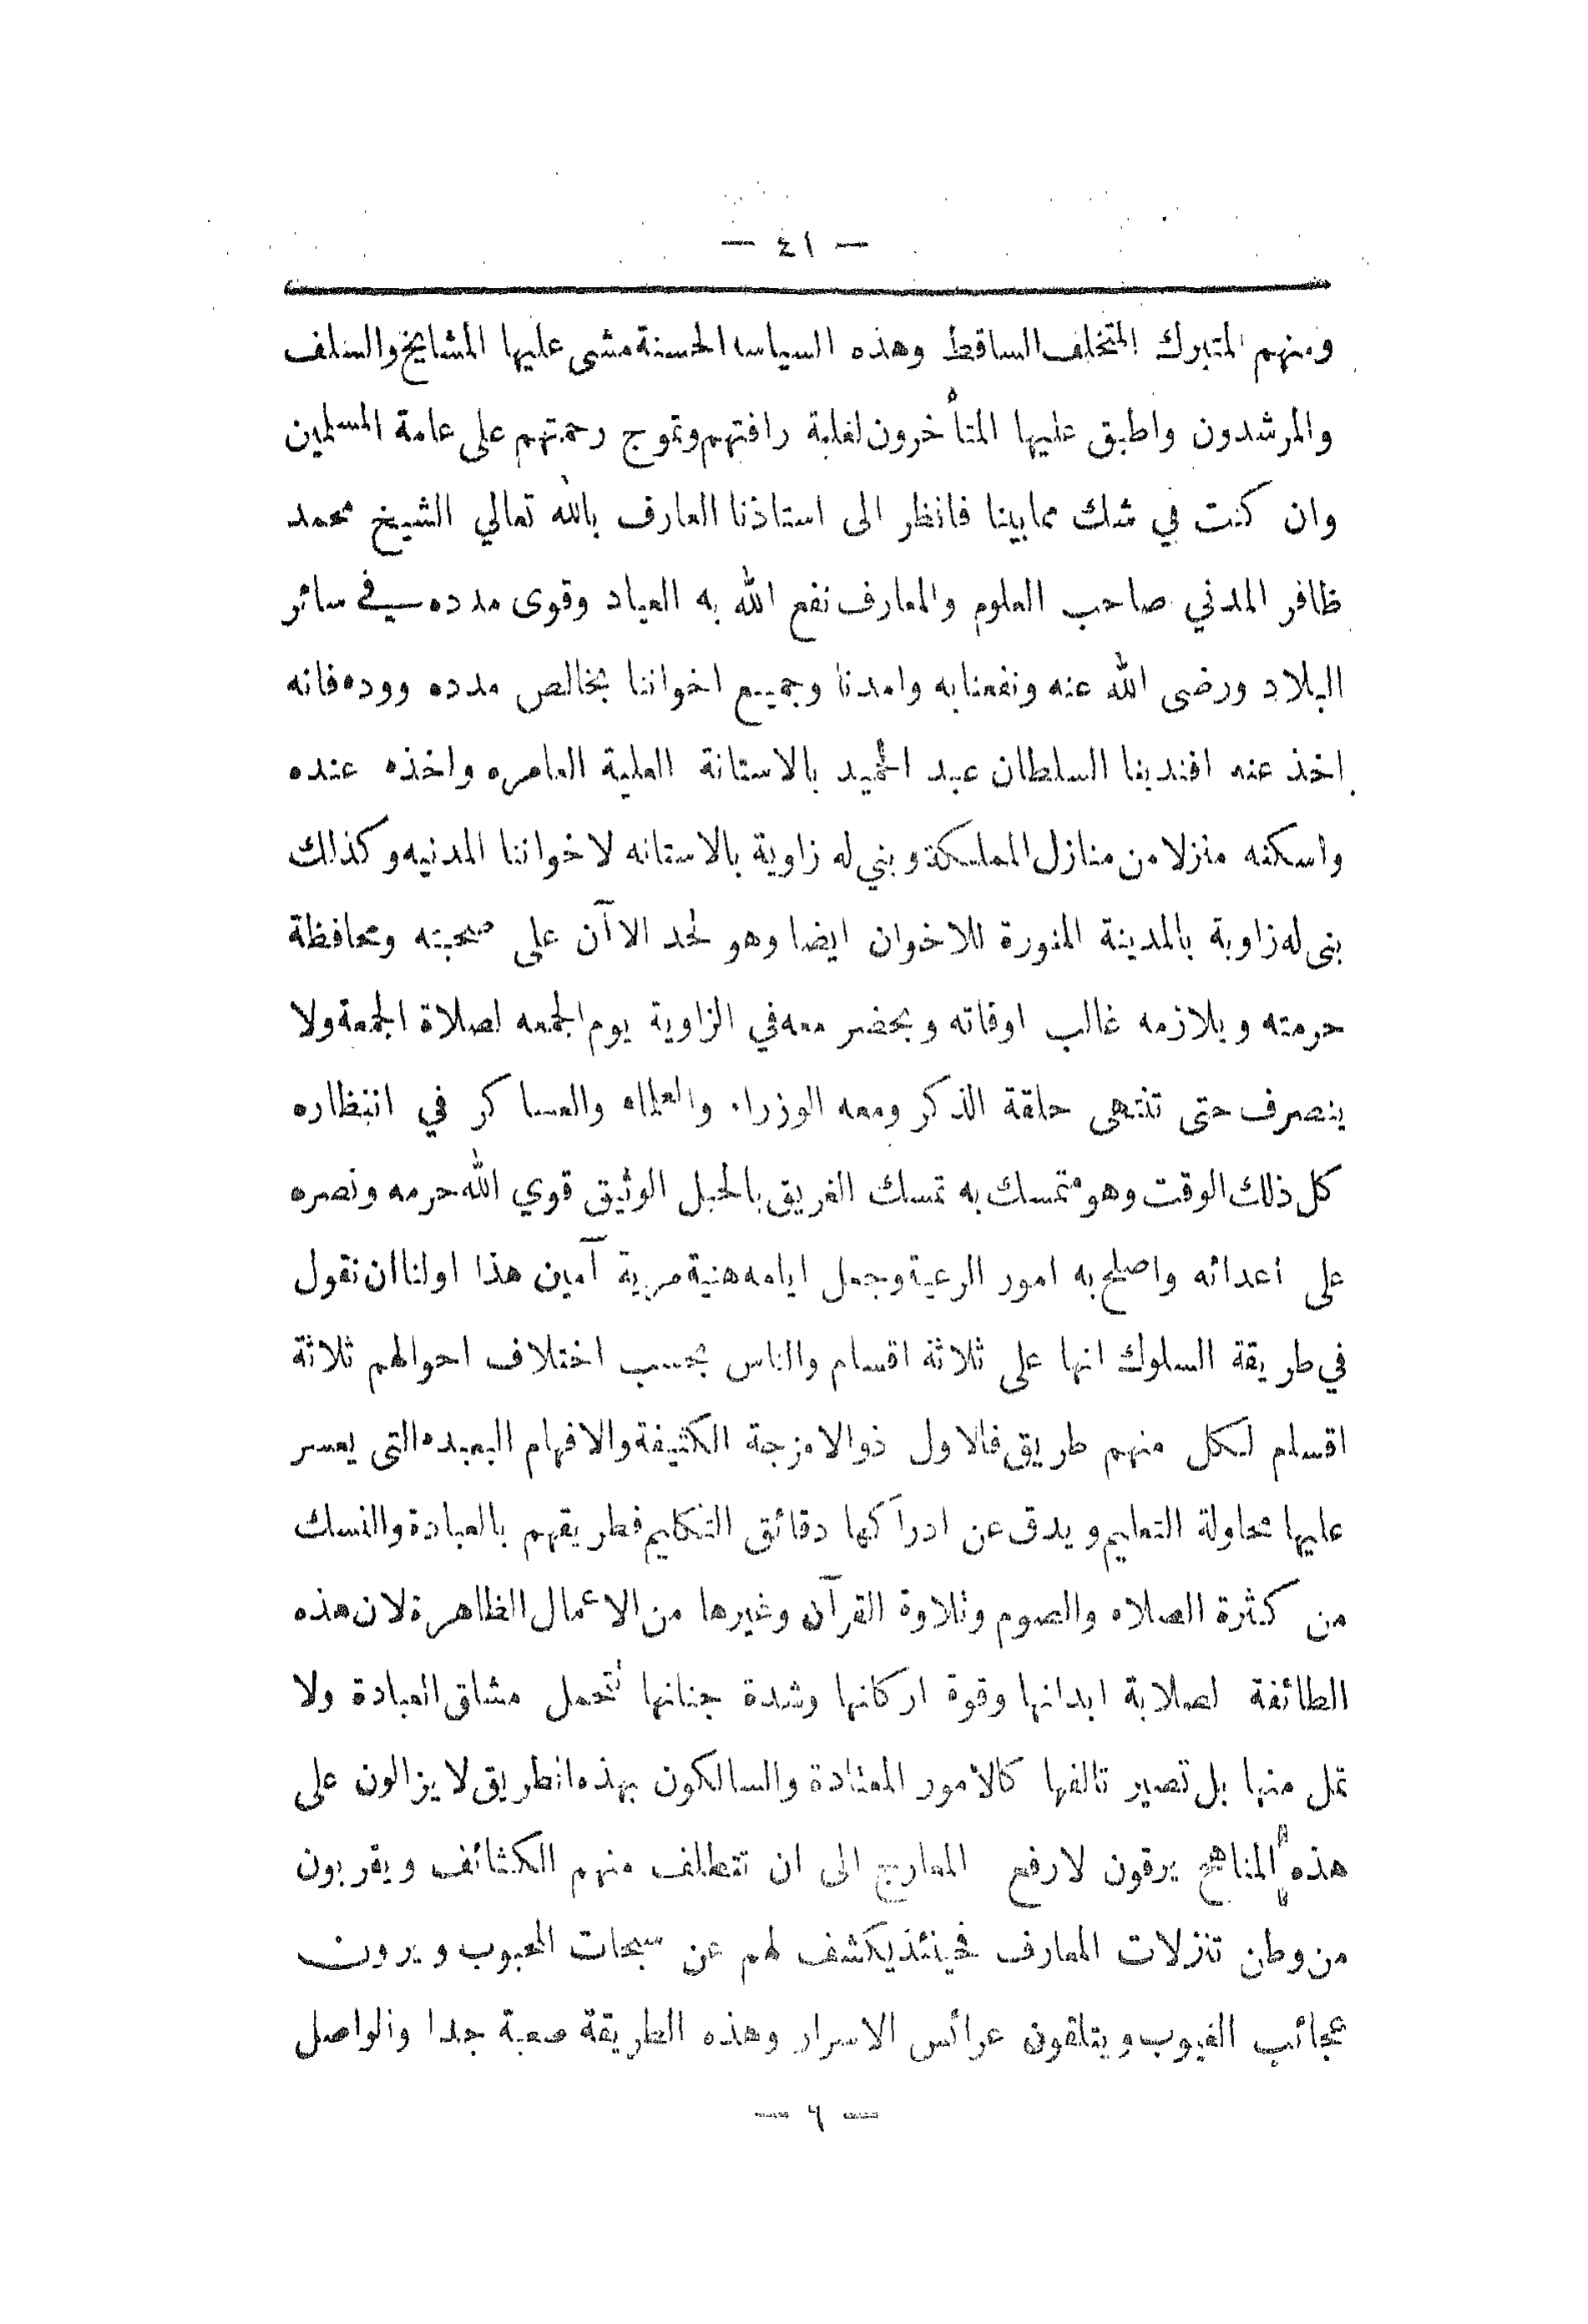 — ٤١ —
ومنهم المتبرك المتخلف الساقط وهذه السياسه الحسنة مشى عليها المشايخ والسلف
والمرشدون واطبق عليها المتأخرون لغلبة رافتهم وتموج رحمتهم على عامة المسلمين
وان كنت في شك مما بينا فانظر الى استاذنا العارف بالله تعالي الشيخ محمد
ظافر المدني صاحب العلوم والمعارف نفع الله به العباد وقوى مدده في سائر
البلاد ورضى الله عنه ونفعنا به وامدنا وجميع اخواننا بخالص مدده ووده فانه
اخذ عنه افندينا السلطان عبد الحميد بالاستانة العلية العامره واخذه عنده
واسكنه منزلا من منازل المملكة وبني له زاوية بالاستانه لاخواننا المدنيه وكذلك
بنى له زاوية بالمدينة المنورة للاخوان ايضا وهو لحد الاآن على صحبته ومحافظة
حرمته ويلازمه غالب اوقاته ويحضر معه في الزاوية يوم الجمعه لصلاة الجمعة ولا
ينصرف حتى تنتهى حلقة الذكر ومعه الوزراء والعلماء والعساكر في انتظاره
كل ذلك الوقت وهو متمسك به تمسك الغريق بالحبل الوثيق قوي الله حرمه ونصره
على أعدائه واصلح به امور الرعية وجعل ايامه هنية مرية آمين هذا اولنا ان نقول
في طريقة السلوك انها على ثلاثة اقسام والناس بحسب اختلاف احوالهم ثلاثة
اقسام لكل منهم طريق فالاول ذو الامزجة الكثيفة والافهام البعيده التى يعسر
عليها محاولة التعليم ويدق عن ادراكها دقائق التكليم فطريقهم بالعبادة والنسك
من كثرة الصلاه والصوم وتلاوة القرآن وغيرها من الاعمال الظاهرة لان هذه
الطائفة لصلابة ابدانها وقوة اركانها وشدة جنانها تتحمل مشاق العبادة ولا
تمل منها بل تصير تالفها كالأمور المعتادة والسالكون بهذه الطريق لا يزالون على
هذه المناهج يرقون لارفع المعاريج الى ان تتطلف منهم الكثائف ويقربون
من وطن تنزلات المعارف فحينئذ يكشف لهم عن سبحات المحبوب ويرون
عجائب الغيوب ويتلقون عرائس الاسرار وهذه الطريقة صعبة جدا والواصل
— ٦ —